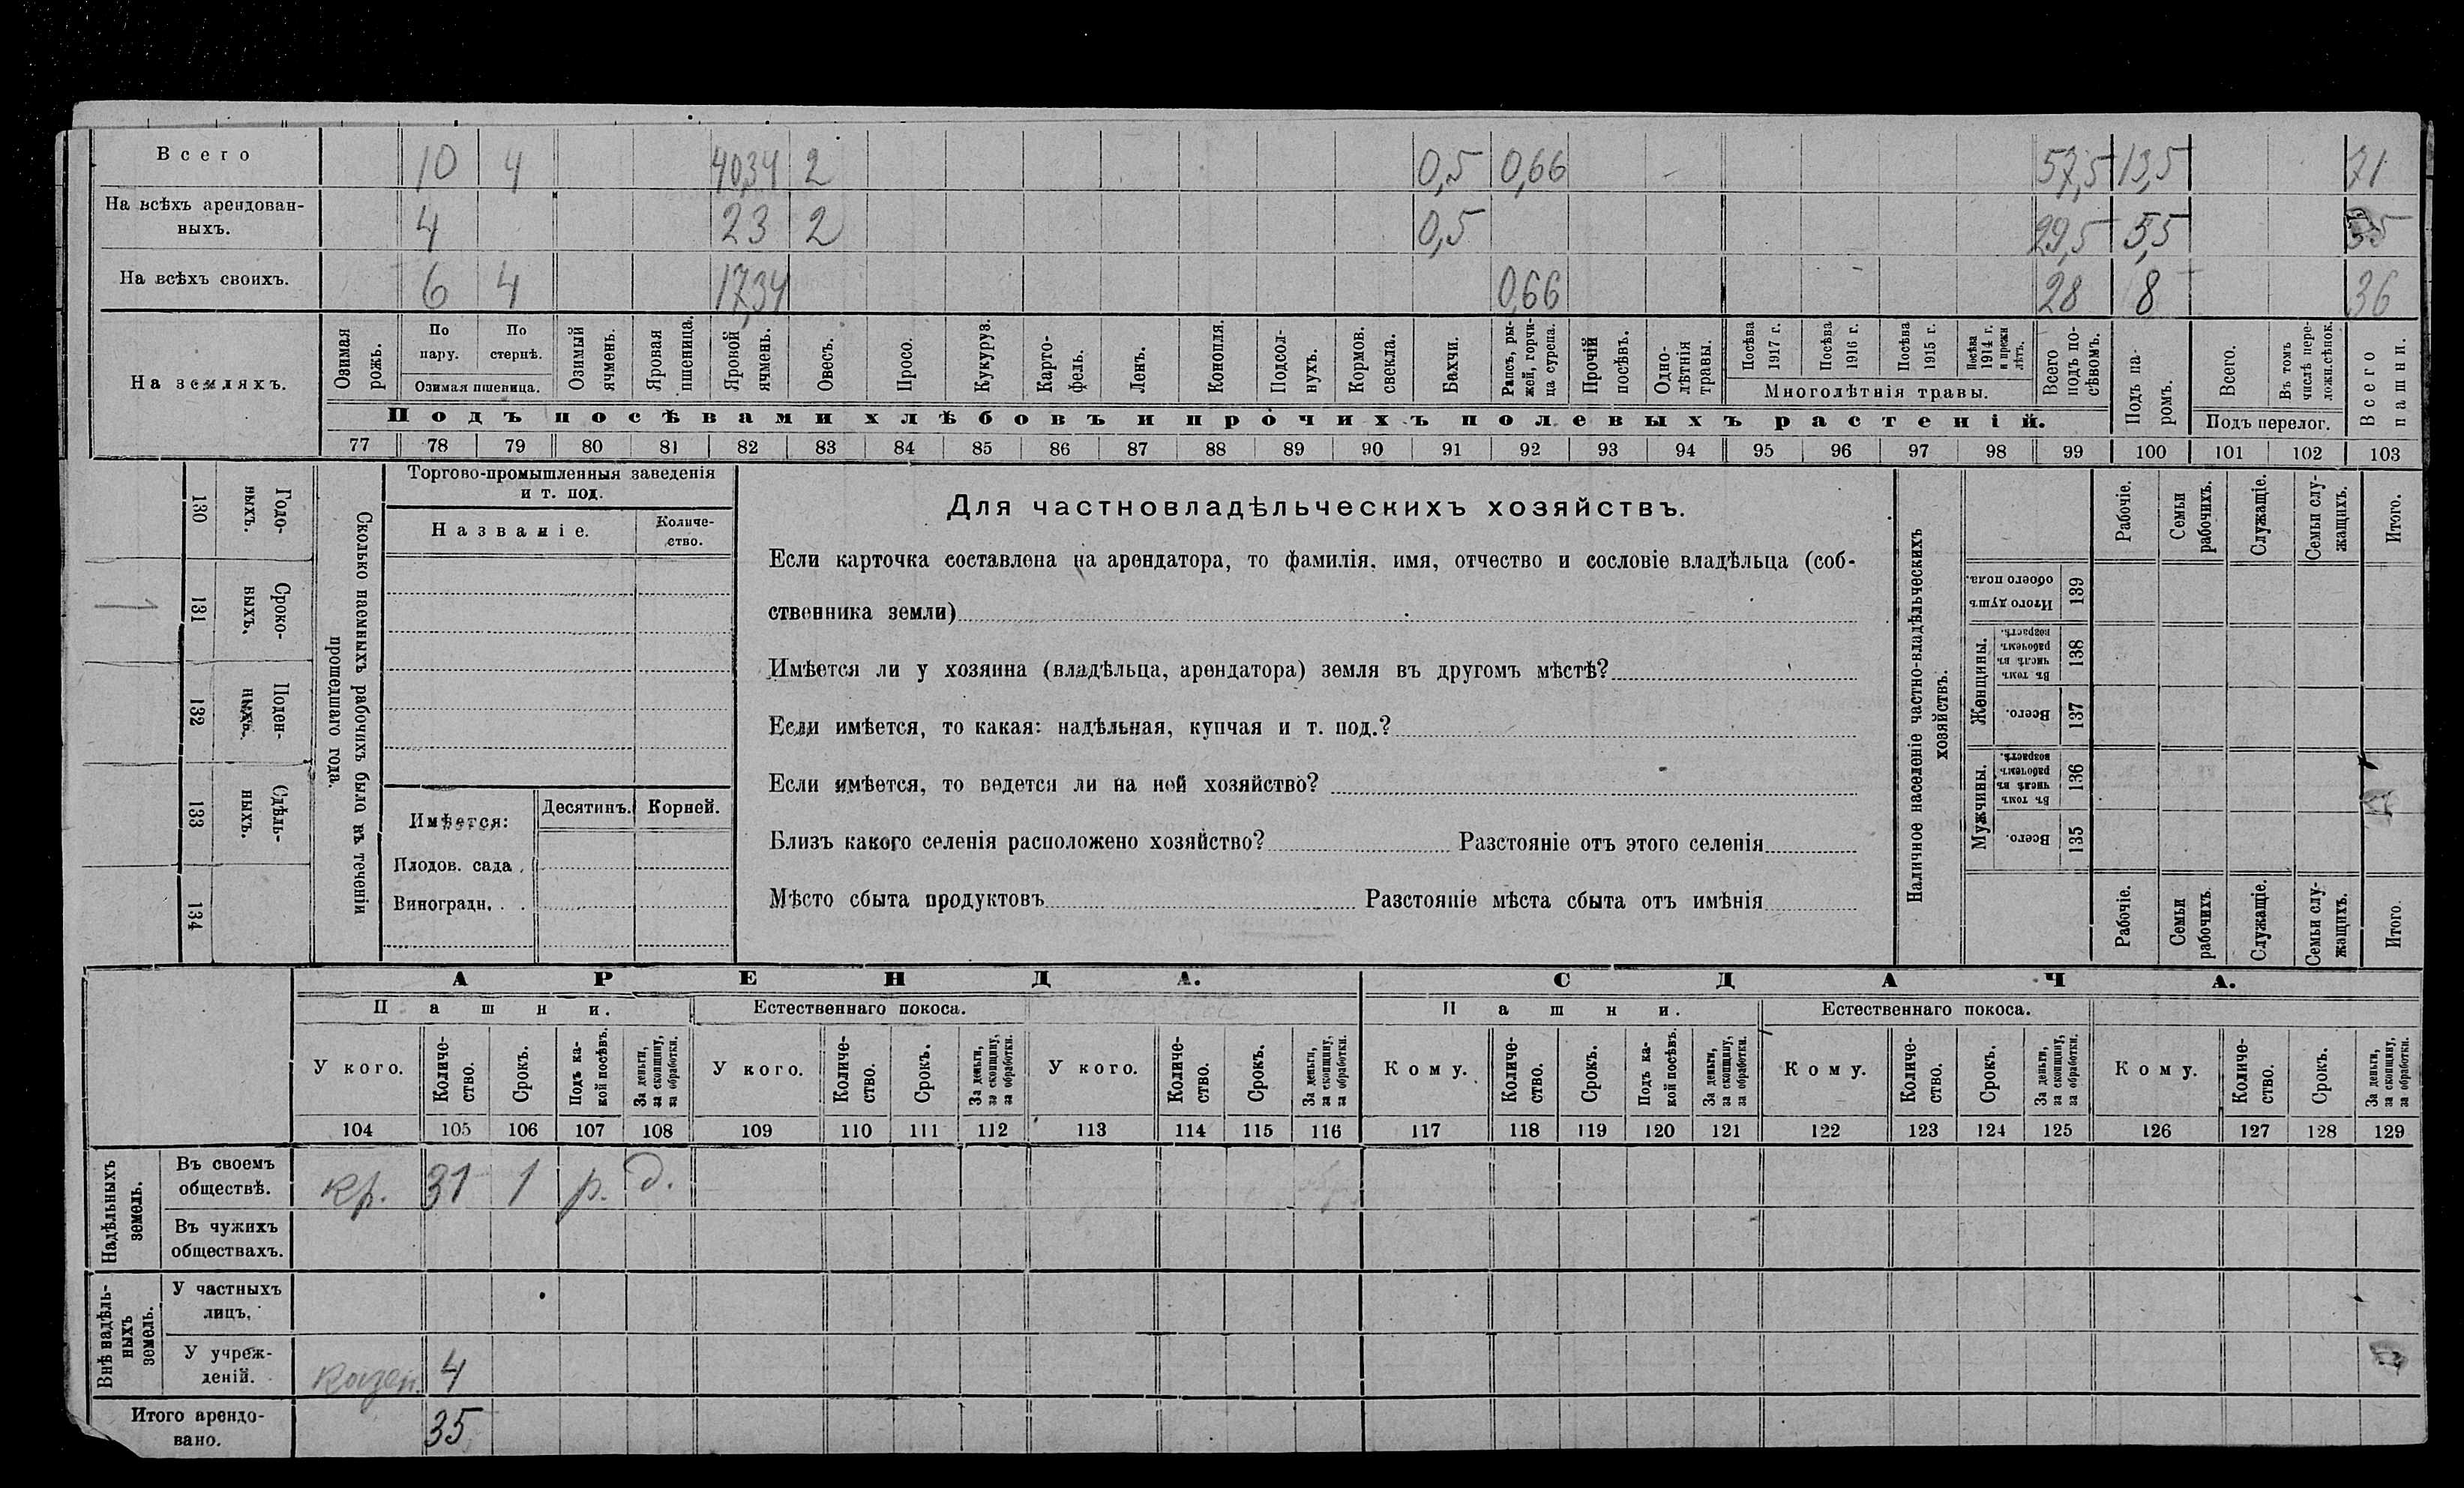 Всего 10 4 40,34 2 0,5 0,66 57,5 13,5 71
На всѣхъ арендован-
ныхъ. 4 23 2 0,5 29,5 5,5 35
На всѣхъ своихъ. 6 4 17,34 0,66 28 8 36
На земляхъ.
Озимая рожь.
По пару.
По стернѣ.
Озимая пшеница.
Озимый ячмень.
Яровая пшеница.
Яровой ячмень.
Овесъ.
Просо.
Кукуруз.
Карто-
фель.
Ленъ.
Конопля.
Подсол-
нухъ.
Кормов. свекла.
Бахчи.
Рапсъ, ры-
жей, горчи-
ца сурепа.
Прочій посѣвъ.
Одно-
лѣтнія травы.
Посѣва 1917 г.
Посѣва 1916 г.
Посѣва 1915 г.
Посѣва 1914 г. и прежн лѣтъ.
Многолѣтнія травы.
Всего подъ по-
сѣвомъ.
Подъ па-
ромъ.
Всего.
Въ томъ числѣ пере-
ложн.сѣнок.
Подъ перелог.
Всего пашни.
Подъ посѣвами хлѣбовъ и прочихъ полевыхъ растеній.
77 78 79 80 81 82 83 84 85 86 87 88 89 90 91 92 93 94 95 96 97 98 99 100 101 102 103
Сколько наемныхъ рабочихъ было въ теченіи
прошедшаго года.
Годо-
ныхъ.
130
Сроко-
ныхъ.
131
1
Поден-
ныхъ.
132
Сдѣль-
ныхъ.
133
134
Торгово-промышленныя заведенія
и т. под.
Названіе.
Количе-
ство.
Имѣется:
Десятинъ.
Корней.
Плодов. сада .
Виноградн. . .
Для частновладѣльческихъ хозяйствъ.
Если карточка составлена на арендатора, то фамилія, имя, отчество и сословіе владѣльца (соб-
ственника земли)
Имѣется ли у хозяина (владѣльца, арендатора) земля въ другомъ мѣстѣ?
Если имѣется, то какая: надѣльная, купчая и т. под.?
Если имѣется, то ведется ли на ней хозяйство?
Близъ какого селенія расположено хозяйство? Разстояніе отъ этого селенія
Мѣсто сбыта продуктовъ Разстояніе мѣста сбыта отъ имѣнія
Наличное населеніе частно-владѣльческихъ
хозяйствъ.
Рабочіе.
Семьи рабочихъ.
Служащіе.
Семьи слу-
жащихъ.
Итого.
Итого душъ обоего пола.
139
Женщины.
Въ томъ числѣ въ рабочемъ возрастѣ.
138
Всего.
137
Мужчины.
Въ томъ числѣ въ рабочемъ возрастѣ.
136
Всего.
135
Рабочіе.
Семьи рабочихъ
Служащіе.
Семьи слу-
жащихъ.
Итого.
АРЕНДА.
СДАЧА.
Пашни.
Естественнаго покоса.
Пашни.
Естественнаго покоса.
У кого.
Количе-
ство.
Срокъ.
Подъ ка-
кой посѣвъ.
За деньги, за скопщину, за обработки.
У кого.
Количе-
ство.
Срокъ.
За деньги, за скопщину, за обработки.
У кого.
Количе-
ство.
Срокъ.
За деньги, за скопщину, за обработки.
Кому.
Количе-
ство.
Срокъ.
Подъ ка-
кой посѣвъ.
За деньги, за скопщину, за обработки.
Кому.
Количе-
ство.
Срокъ.
За деньги, за скопщину, за обработки.
Кому.
Количе-
ство.
Срокъ.
За деньги, за скопщину, за обработки.
104 105 106 107 108 109 110 111 112 113 114 115 116 117 118 119 120 121 122 123 124 125 126 127 128 129
Надѣльныхъ земель.
Въ своемъ
обществѣ. кр. 31 1 р. д.
Въ чужихъ
обществахъ.
Внѣ надѣль-
ныхъ земель.
У частныхъ
лицъ.
У учреж-
деній. казен. 4
Итого арендо-
вано. 35